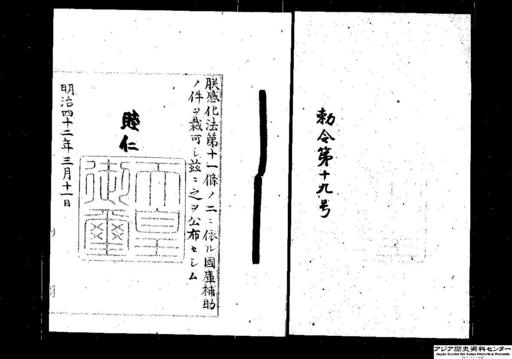 勅令第十九号
朕感化法第十一條ノ二ニ依ル國庫補助
ノ件ヲ裁可シ玆ニ之ヲ公布セシム
睦仁
天皇
御璽
明治四十二年三月十一日
アジア歴史資料センター
Japan Center for Asian Historical Records